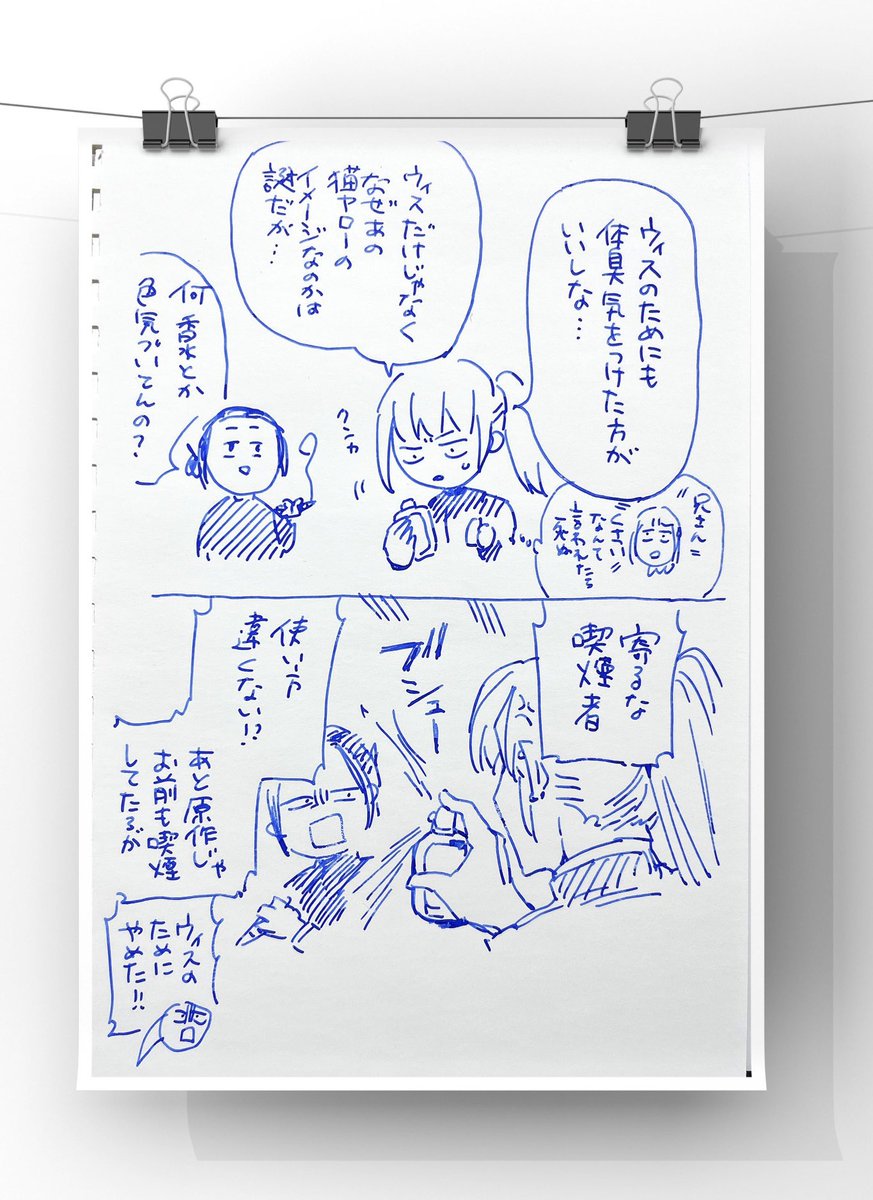 ウィスのためにも
体臭気をつけた方が
いいしな…
兄さん
くさい
なんて
言われたら
死ぬ
ウィスだけじゃなく
なぜあの
猫ヤローの
イメージなのかは
謎だが…
クンカ
何 香水とか
色気づいてんの?
寄るな
喫煙者
ブシュー
使い方
違くない!?
あと原作じゃ
お前も喫煙
してたろが
ウィスの
ために
やめた!!